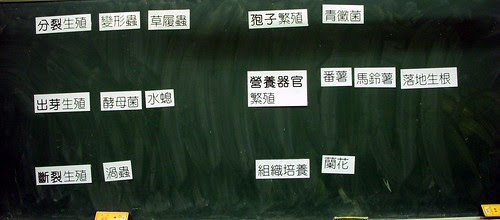 分裂生殖 變形蟲 草履蟲
孢子繁殖 青黴菌
出芽生殖 酵母菌 水螅
營養器官
繁殖
番薯 馬鈴薯 落地生根
斷裂生殖 渦蟲
組織培養 蘭花